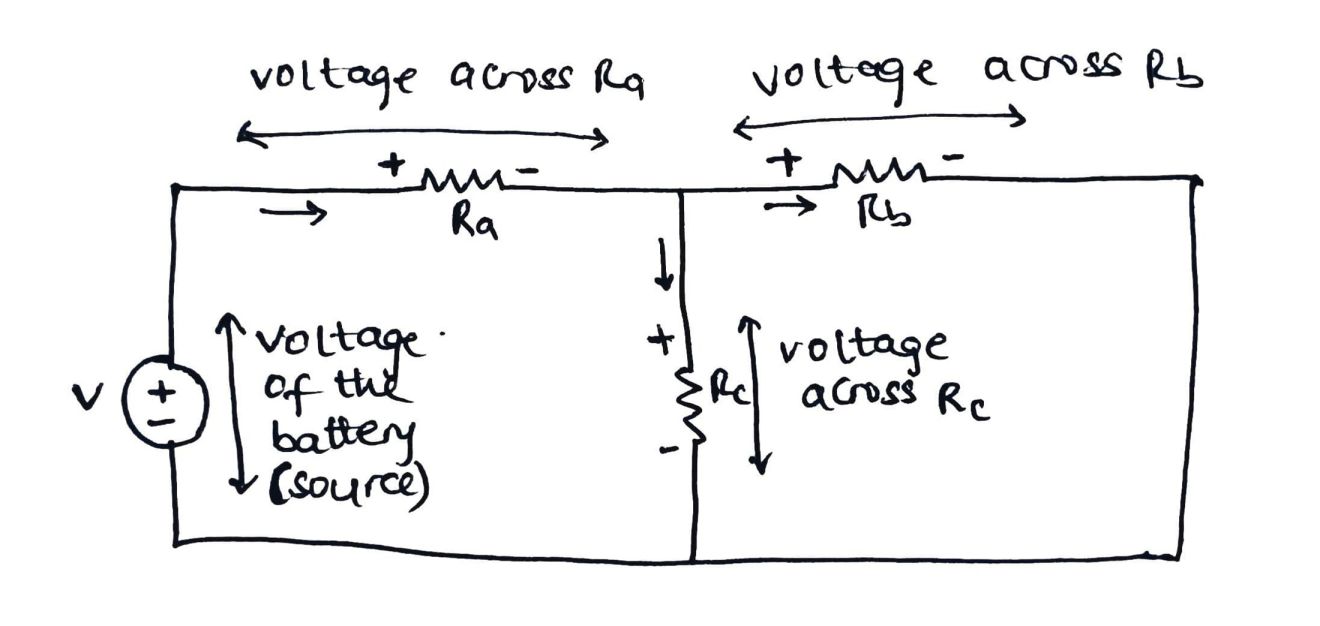 voltage across Ra
voltage across Rb
+ -
+ -
Ra
Rb
voltage
of the
battery
(source)
V
+
-
+
Rc
-
voltage
across Rc